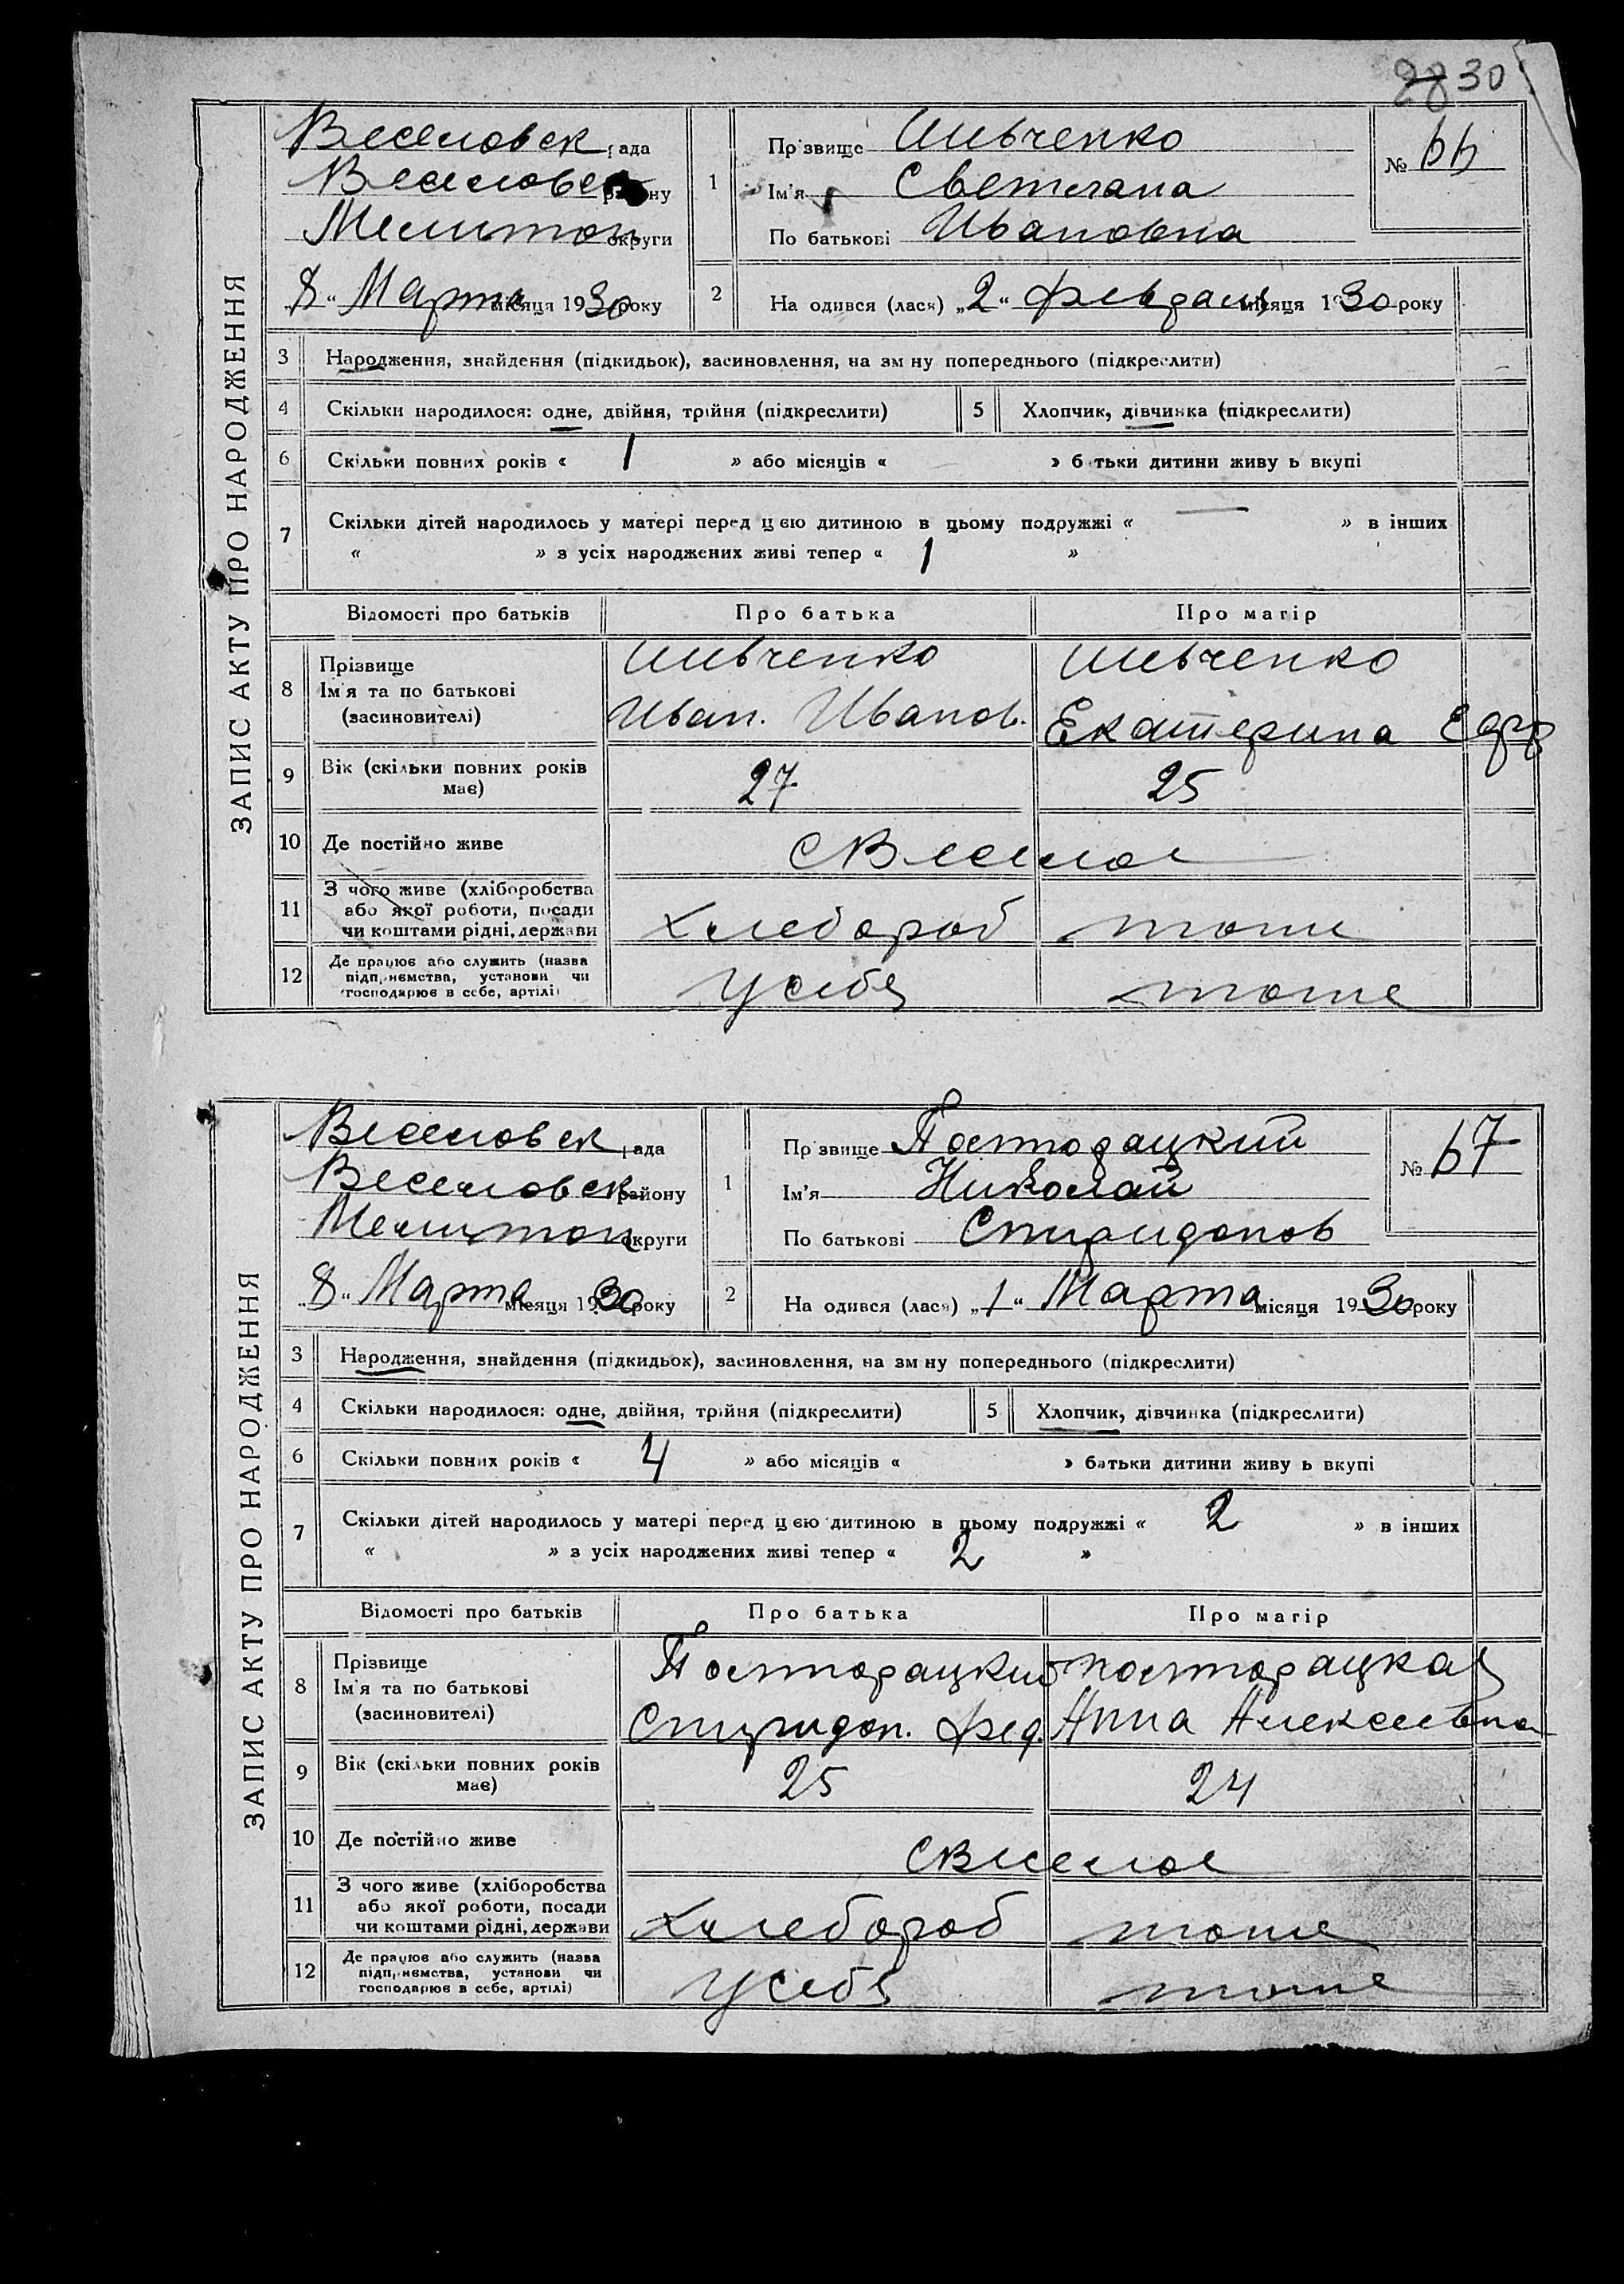 28 30
ЗАПИС АКТУ ПРО НАРОДЖЕННЯ
Веселовск рада
Веселовск району
Мелитоп округи
„8“ Марта місяця 1930 року
1
Прізвище Шевченко
Ім'я Светлана
По батькові Ивановна
№ 66
2
На одився (лася) „2“ февраля місяця 1930 року
3 Народження, знайдення (підкидьок), засиновлення, на зм ну попереднього (підкреслити)
4 Скільки народилося: одне, двійня, трійня (підкреслити) 5 Хлопчик, дівчинка (підкреслити)
6 Скільки повних років « 1 » або місяців « » батьки дитини живу ь вкупі
7 Скільки дітей народилось у матері перед цією дитиною в цьому подружжі « — » в інших
« » з усіх народжених живі тепер « 1 »
Відомості про батьків Про батька Про матір
8 Прізвище
Ім'я та по батькові
(засиновителі)
Шевченко Шевченко
Иван. Иванов. Екатерина
9 Вік (скільки повних років має) 27 25
10 Де постійно живе С Веселое
11 З чого живе (хліборобства
або якої роботи, посади
чи коштами рідні, держави
Хлебороб тоже
12 Де працює або служить (назва
підприємства, установи чи
господарює в себе, артілі)
У себя тоже
ЗАПИС АКТУ ПРО НАРОДЖЕННЯ
Веселовск рада
Веселовск району
Мелитоп округи
„8“ Марта місяця 1930 року
1
Прізвище Посторацкий
Ім'я Николай
По батькові Спиридонов
№ 67
2
На одився (лася) „1“ Марта місяця 1930 року
3 Народження, знайдення (підкидьок), засиновлення, на зм ну попереднього (підкреслити)
4 Скільки народилося: одне, двійня, трійня (підкреслити) 5 Хлопчик, дівчинка (підкреслити)
6 Скільки повних років « 4 » або місяців « » батьки дитини живу ь вкупі
7 Скільки дітей народилось у матері перед цією дитиною в цьому подружжі « 2 » в інших
« » з усіх народжених живі тепер « 2 »
Відомості про батьків Про батька Про матір
8 Прізвище
Ім'я та по батькові
(засиновителі)
Посторацкий Посторацкая
Спиридон. Фед. Анна Алексеевна
9 Вік (скільки повних років має) 25 24
10 Де постійно живе С Веселое
11 З чого живе (хліборобства
або якої роботи, посади
чи коштами рідні, держави
Хлебороб тоже
12 Де працює або служить (назва
підприємства, установи чи
господарює в себе, артілі)
У себя тоже